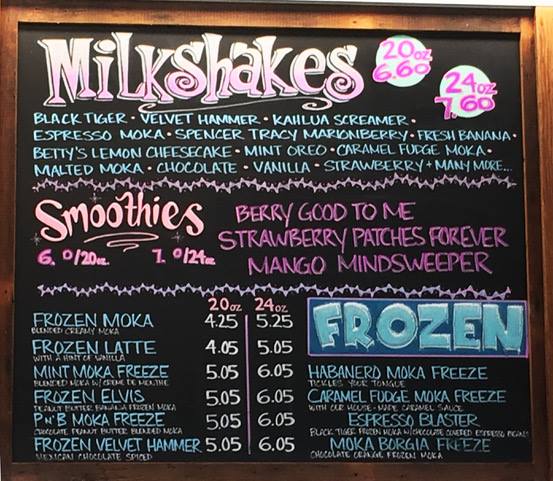 MILKSHAKES
20oz
6.60
24oz
7.60
BLACK TIGER · VELVET HAMMER · KAHLUA SCREAMER ·
ESPRESSO MOKA · SPENCER TRACY MARIONBERRY · FRESH BANANA ·
BETTY'S LEMON CHEESECAKE · MINT OREO · CARAMEL FUDGE MOKA ·
MALTED MOKA · CHOCOLATE · VANILLA · STRAWBERRY + MANY MORE...
Smoothies
6. 0/20oz 7. 0/24oz
BERRY GOOD TO ME
STRAWBERRY PATCHES FOREVER
MANGO MINDSWEEPER
20oz 24oz
FROZEN MOKA 4.25 5.25
BLENDED CREAMY MOKA
FROZEN LATTE 4.05 5.05
WITH A HINT OF VANILLA
MINT MOKA FREEZE 5.05 6.05
BLENDED MOKA W/ CREME DE MENTHE
FROZEN ELVIS 5.05 6.05
PEANUT BUTTER BANANA FROZEN MOKA
P'N'B MOKA FREEZE 5.05 6.05
CHOCOLATE PEANUT BUTTER BLENDED MOKA
FROZEN VELVET HAMMER 5.05 6.05
MEXICAN CHOCOLATE SPICED
FROZEN
HABANERO MOKA FREEZE
TICKLES YOUR TONGUE
CARAMEL FUDGE MOKA FREEZE
WITH OUR HOUSE-MADE CARAMEL SAUCE
ESPRESSO BLASTER
BLACK TIGER FROZEN MOKA W/ CHOCOLATE COVERED ESPRESSO BEANS
MOKA BORGIA FREEZE
CHOCOLATE ORANGE FROZEN MOKA